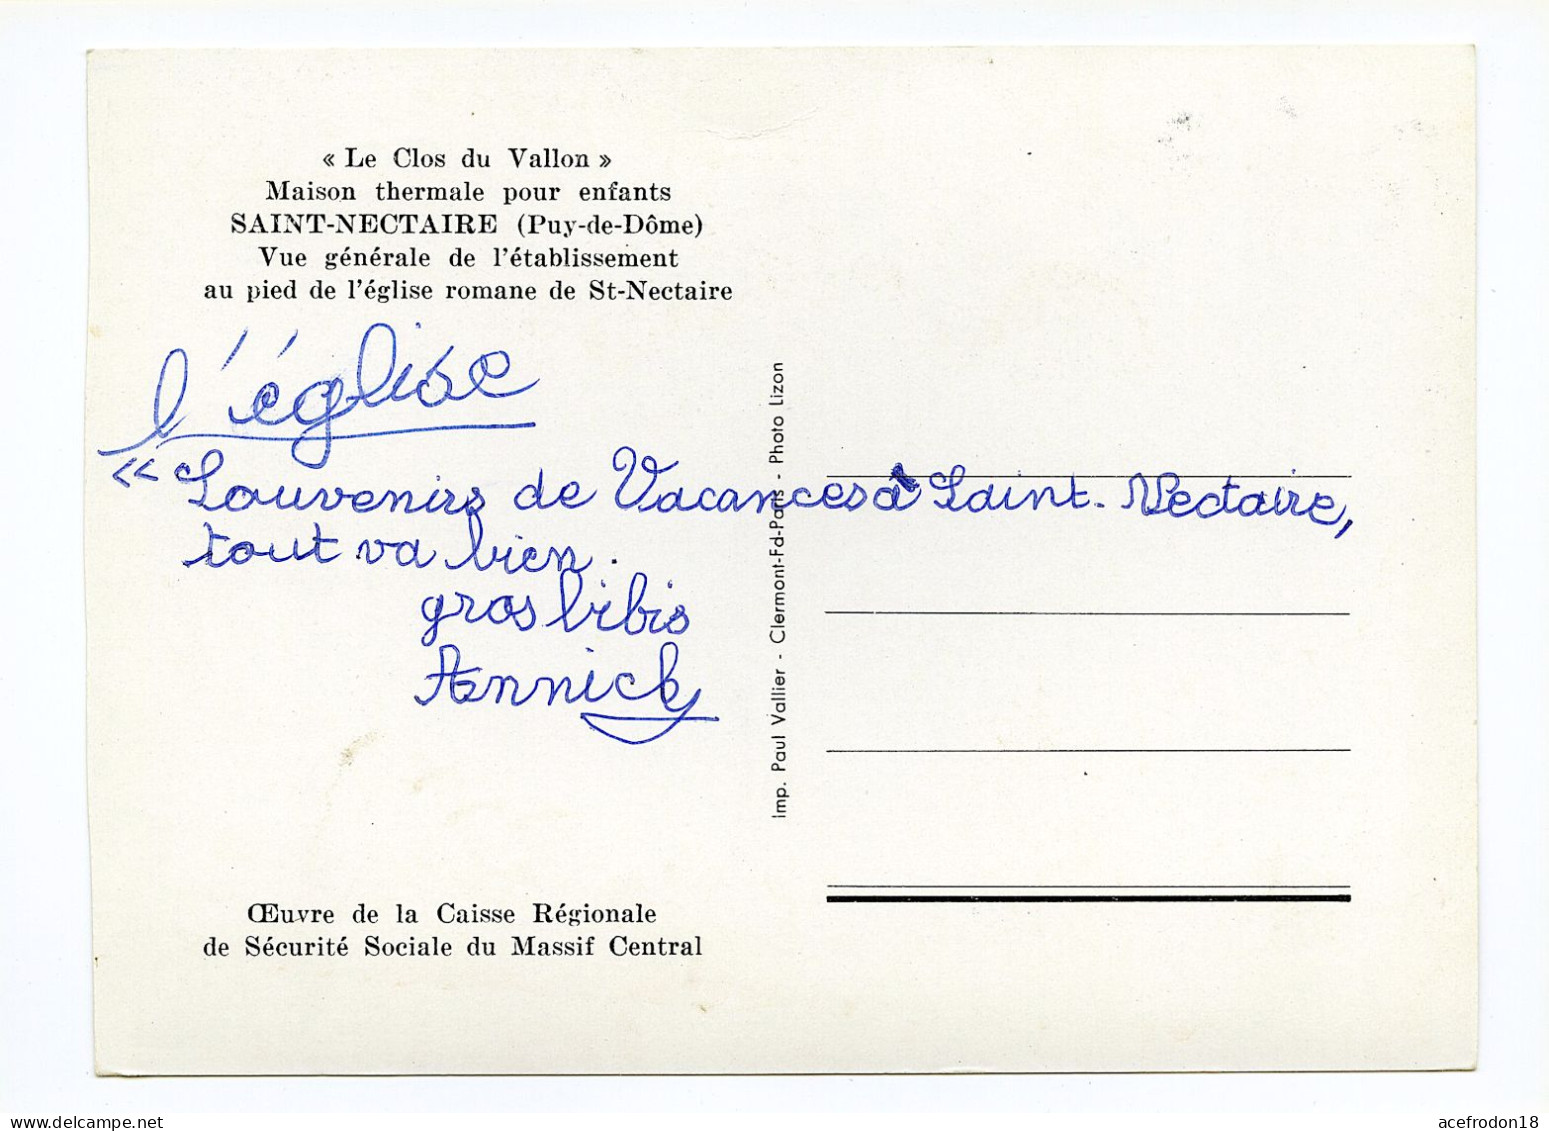 « Le Clos du Vallon »
Maison thermale pour enfants
SAINT-NECTAIRE (Puy-de-Dôme)
Vue générale de l'établissement
au pied de l'église romane de St-Nectaire
l'église
« Souvenirs de Vacances à Saint-Nectaire,
tout va bien.
gros bibis
Annick
Œuvre de la Caisse Régionale
de Sécurité Sociale du Massif Central
Imp. Paul Vallier - Clermont-Fd-Paris - Photo Lizon
acefrodon18